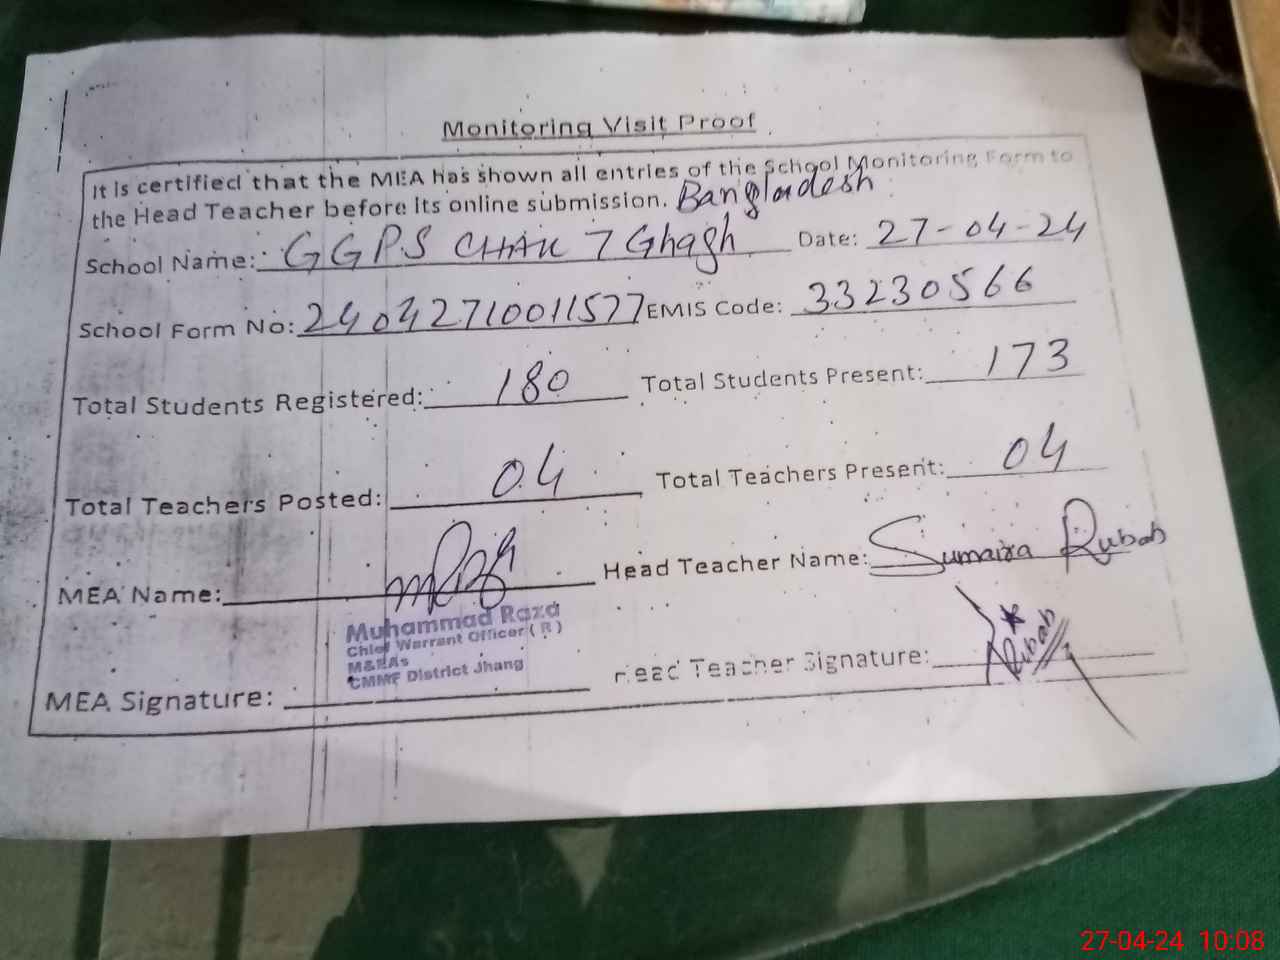 Monitoring Visit Proof
It is certified that the MEA has shown all entries of the School Monitoring Form to
the Head Teacher before its online submission. Bangladesh
School Name: GGPS CHAK 7 Ghagh Date: 27-04-24
School Form No: 24042710011577 EMIS Code: 33230566
Total Students Registered: 180 Total Students Present: 173
Total Teachers Posted: 04 Total Teachers Present: 04
MEA Name: Head Teacher Name: Sumaira Rubab
Muhammad Raza
Chief Warrant Officer (R)
M&EAs
CMMF District Jhang
MEA Signature: Head Teacher Signature: Rubab
27-04-24 10:08